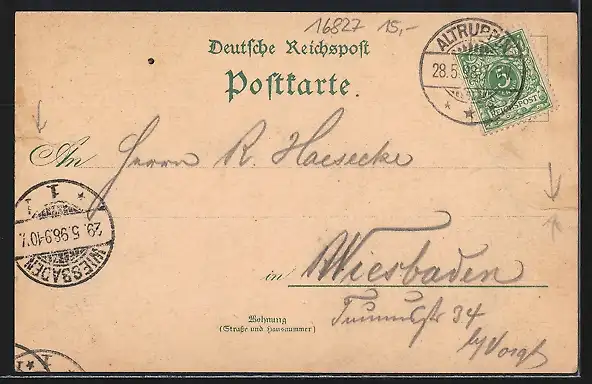 16827 15,-
Deutsche Reichspost
Postkarte.
ALTRUPPIN
28.5.98
5
REICHSPOST
An Herrn R. Haesecke
1
29.5.98.9-10V.
WIESBADEN
in Wiesbaden
Wohnung
(Straße und Hausnummer)
Taunusstr 34
b/Voigt